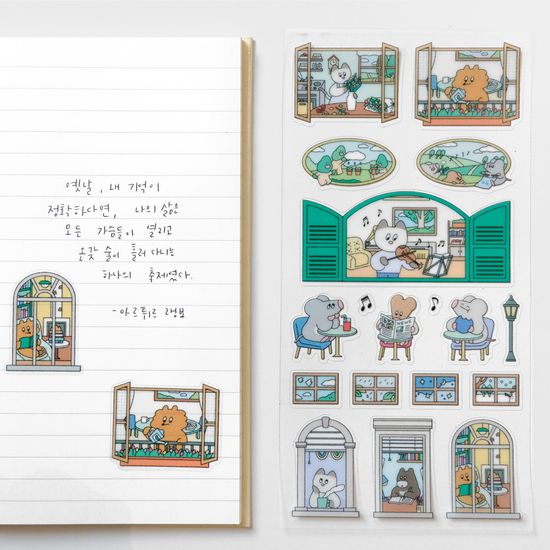 옛날, 내 기억이
정확하다면, 나의 삶은
모든 가슴들이 열리고
온갖 술이 흘러 다니는
하나의 축제였다.
-아르튀르 랭보